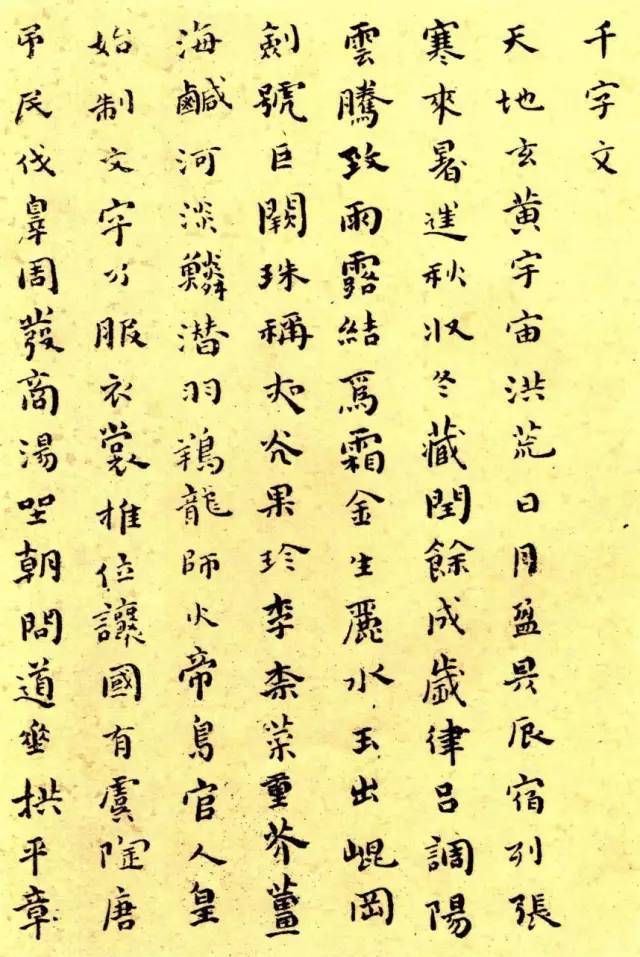 千字文
天地玄黃宇宙洪荒日月盈昃辰宿列張
寒來暑逬秋收冬藏閏餘成歲律呂調陽
雲騰致雨露結爲霜金生麗水玉出崐岡
劍號巨闕珠稱夜光果珍李柰菜重芥薑
海鹹河淡鱗潛羽翔龍師火帝鳥官人皇
始制文字乃服衣裳推位讓國有虞陶唐
弔民伐辠周發商湯坐朝問道垂拱平章